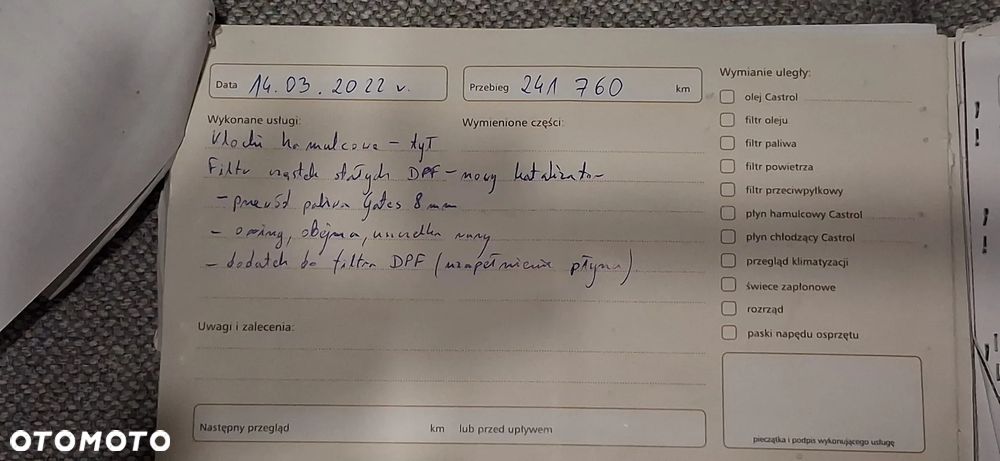 Data 14.03.2022 r.
Przebieg 241 760 km
Wykonane usługi:
Wymienione części:
Klocki hamulcowe - tył
Filtr cząstek stałych DPF - nowy katalizator
- przewód paliwa Gates 8 mm
- oring, obejma, uszczelka rury
- dodatek do filtra DPF (uzupełnienie płynu)
Uwagi i zalecenia:
Następny przegląd km lub przed upływem
Wymianie uległy:
olej Castrol
filtr oleju
filtr paliwa
filtr powietrza
filtr przeciwpyłkowy
płyn hamulcowy Castrol
płyn chłodzący Castrol
przegląd klimatyzacji
świece zapłonowe
rozrząd
paski napędu osprzętu
pieczątka i podpis wykonującego usługę
OTOMOTO